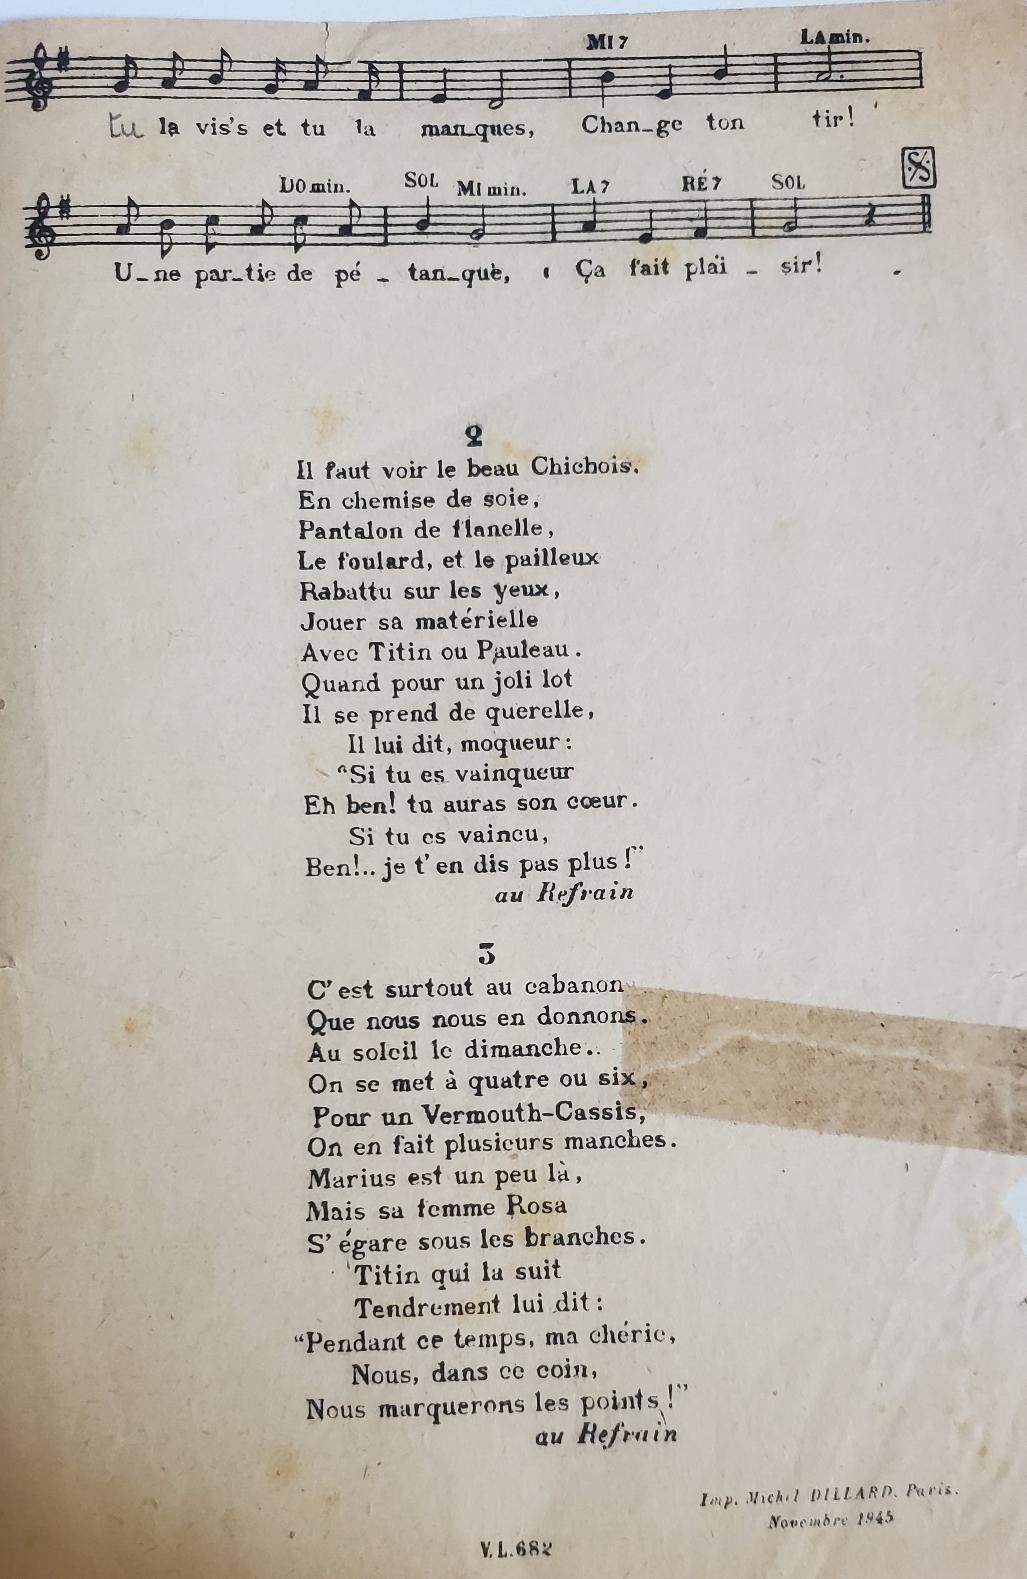 MI 7 LA min.
tu la vis's et tu la man_ques, Chan_ge ton tir!
DO min. SOL MI min. LA 7 RÉ 7 SOL
U_ne par_tie de pé _ tan_que, Ça fait plai _ sir!
2
Il faut voir le beau Chichois.
En chemise de soie,
Pantalon de flanelle,
Le foulard, et le pailleux
Rabattu sur les yeux,
Jouer sa matérielle
Avec Titin ou Pauleau.
Quand pour un joli lot
Il se prend de querelle,
Il lui dit, moqueur:
"Si tu es vainqueur
Eh ben! tu auras son cœur.
Si tu es vaincu,
Ben!.. je t'en dis pas plus!"
au Refrain
3
C'est surtout au cabanon
Que nous nous en donnons.
Au soleil le dimanche..
On se met à quatre ou six,
Pour un Vermouth-Cassis,
On en fait plusieurs manches.
Marius est un peu là,
Mais sa femme Rosa
S'égare sous les branches.
Titin qui la suit
Tendrement lui dit:
"Pendant ce temps, ma chérie,
Nous, dans ce coin,
Nous marquerons les points!"
au Refrain
Imp. Michel DILLARD. Paris.
Novembre 1945
V.L.682